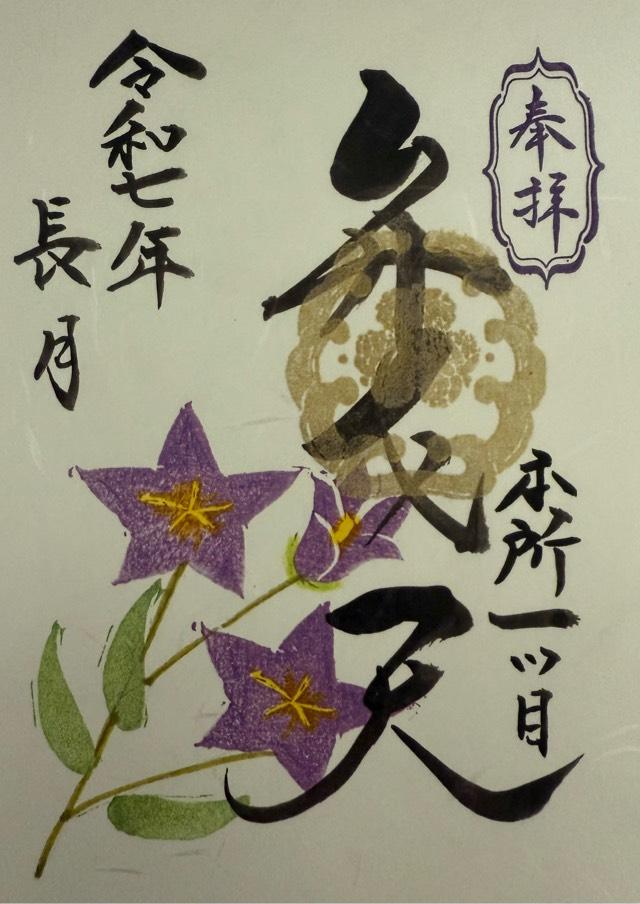 奉拝
本所一ツ目
弁戝天
令和七年
長月